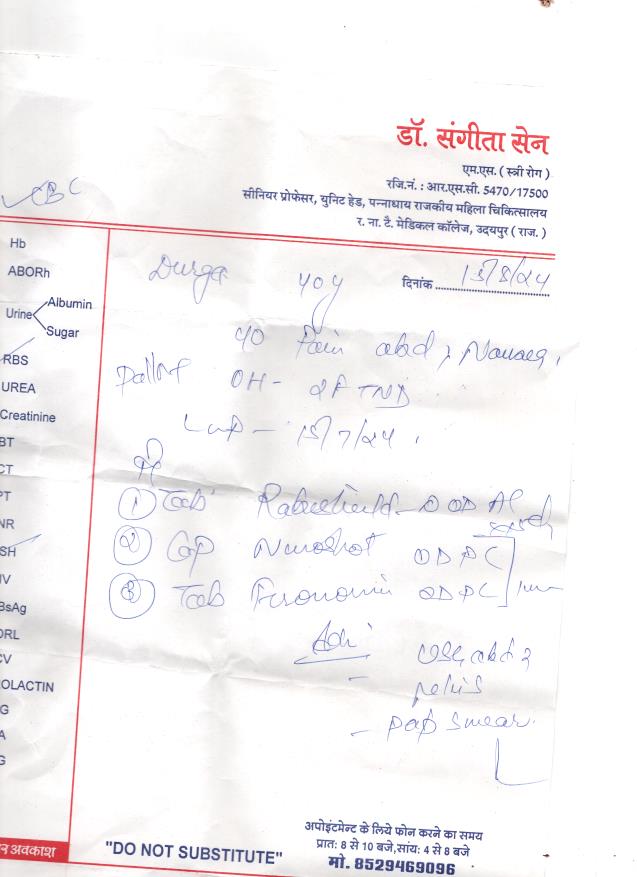 डॉ. संगीता सेन
एम.एस. ( स्त्री रोग )
रजि.नं. : आर.एस.सी. 5470/17500
सीनियर प्रोफेसर, युनिट हेड, पन्नाधाय राजकीय महिला चिकित्सालय
र. ना. टै. मेडिकल कॉलेज, उदयपुर ( राज. )
CBC
Hb
ABORh
Urine Albumin
Sugar
RBS
UREA
Creatinine
BT
CT
PT
NR
SH
IV
BsAg
DRL
CV
OLACTIN
G
A
G
Durga 40y
दिनांक 13/8/24
Pain abd, Nausea,
Pallor OH- 2FTND
LMP - 15/7/24.
① Tab OD AC
② Cap Neuroshot OD PC
③ Tab OD PC
Adv
USG abd &
pelvis
- pap smear.
न अवकाश
"DO NOT SUBSTITUTE"
अपोइंटमेन्ट के लिये फोन करने का समय
प्रात: 8 से 10 बजे,सांय: 4 से 8 बजे
मो. 8529469096